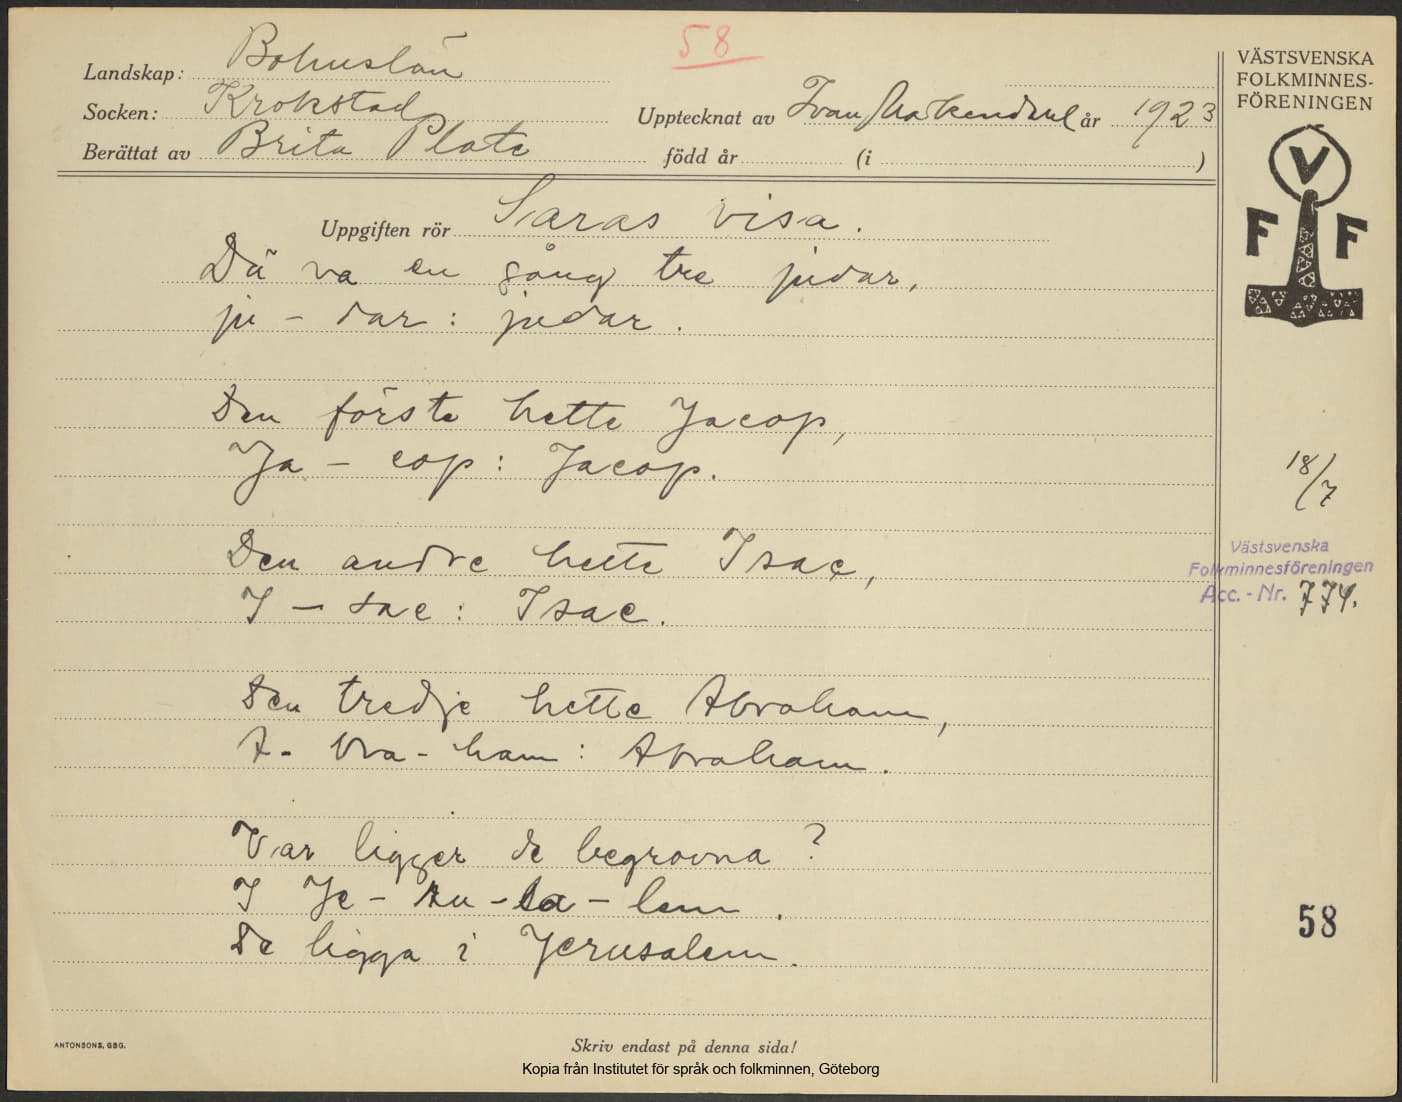 58
Landskap: Bohuslän
Socken: Krokstad
Upptecknat av Ivar år 1923
Berättat av Brita Plate född år (i )
Uppgiften rör Saras visa.
Dä va en gång tre judar,
ju - dar: judar.
Den förste hette Jacop,
Ja - cop: Jacop.
Den andre hette Isac,
I - sac: Isac.
Den tredje hette Abraham,
A - bra - ham: Abraham.
Var ligger de begrovna?
I Je - ru - sa - lem.
De ligga i Jerusalem.
ANTONSONS, GBG.
Skriv endast på denna sida!
Kopia från Institutet för språk och folkminnen, Göteborg
VÄSTSVENSKA
FOLKMINNES-
FÖRENINGEN
V
F F
18/7
Västsvenska
Folkminnesföreningen
Acc.-Nr. 774.
58